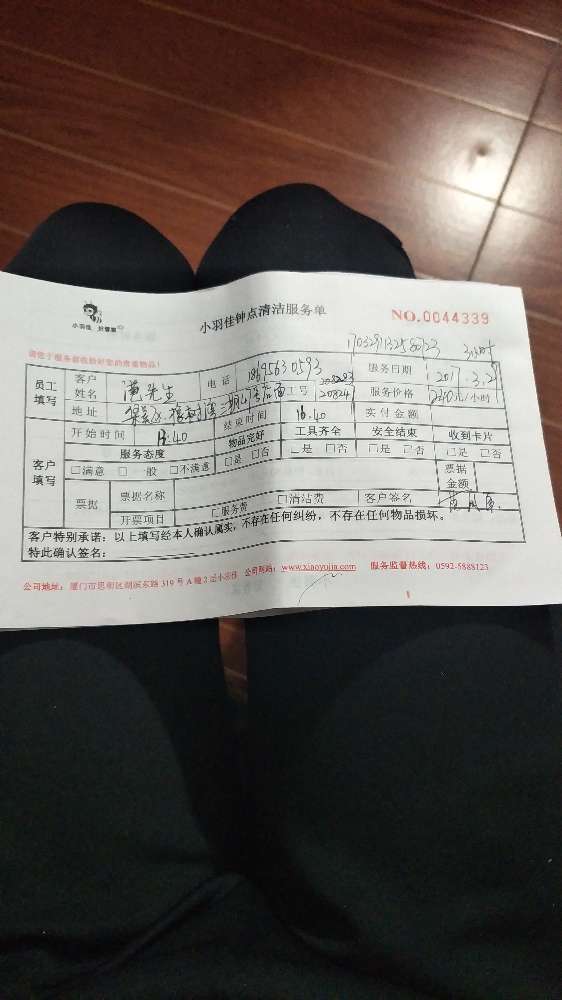 小羽佳钟点清洁服务单
小羽佳 好管家
NO.0044339
17032913258023 3.3小时
请您于服务前收拾好您的贵重物品!
员工填写 客户姓名 先生 电话 18695630593 服务日期 2017.3.29
地址 工号 208203 208247 服务价格 元/小时
开始时间 13:40 结束时间 16.40 实付金额
客户填写 服务态度 物品完好 工具齐全 安全结束 收到卡片
□满意 □一般 □不满意 □是 □否 □是 □否 □是 □否 □是 □否
票据 票据名称 票据金额
开票项目 □服务费 □清洁费 客户签名
客户特别承诺:以上填写经本人确认属实,不存在任何纠纷,不存在任何物品损坏。
特此确认签名:
公司地址:厦门市思明区湖滨东路319号A幢2层小羽佳 公司网站:www.xiaoyujia.com 服务监督热线:0592-5888123